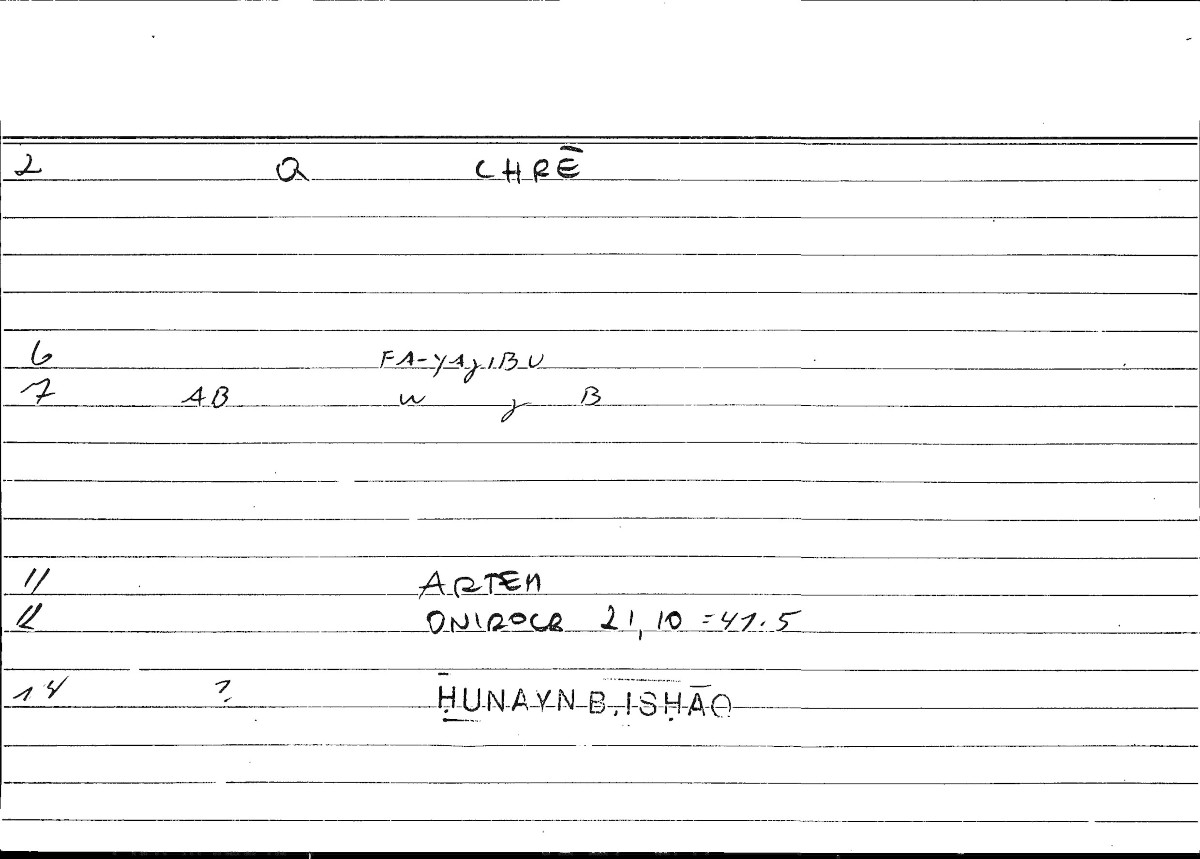 2 Q CHRĒ
6 FA-YAJIBU
7 AB W J B
11 ARTEM
12 ONIROCR 21,10 = 41.5
14 ? ḤUNAYN B. ISḤĀQ